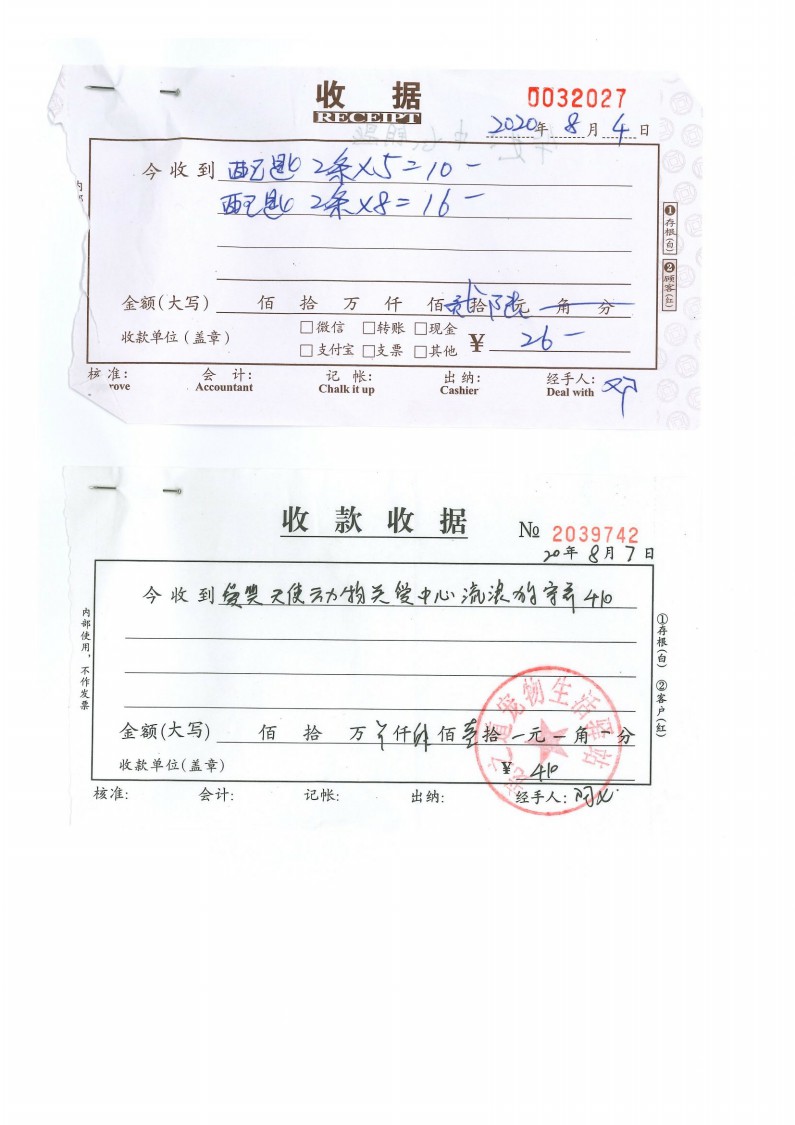 收 据
RECEIPT
0032027
2020年 8 月 4 日
今收到 配匙 2条×5=10-
配匙 2条×8=16-
金额(大写) 佰 拾 万 仟 佰 贰拾 陆元 角 分
收款单位(盖章) □微信 □转账 □现金
□支付宝 □支票 □其他 ¥ 26-
核 准: 会 计: 记 帐: 出 纳: 经手人: 邓
rove Accountant Chalk it up Cashier Deal with
内部
①存根(白) ②顾客(红)
收 款 收 据
№ 2039742
20年 8月 7日
今收到 天使动物关爱中心流浪狗寄养 410
金额(大写) 佰 拾 万 仟 肆佰 壹拾 元 角 分
收款单位(盖章) ¥ 410
核准: 会计: 记帐: 出纳: 经手人:
内部使用,不作发票
①存根(白) ②客户(红)
道宠物生活驿站